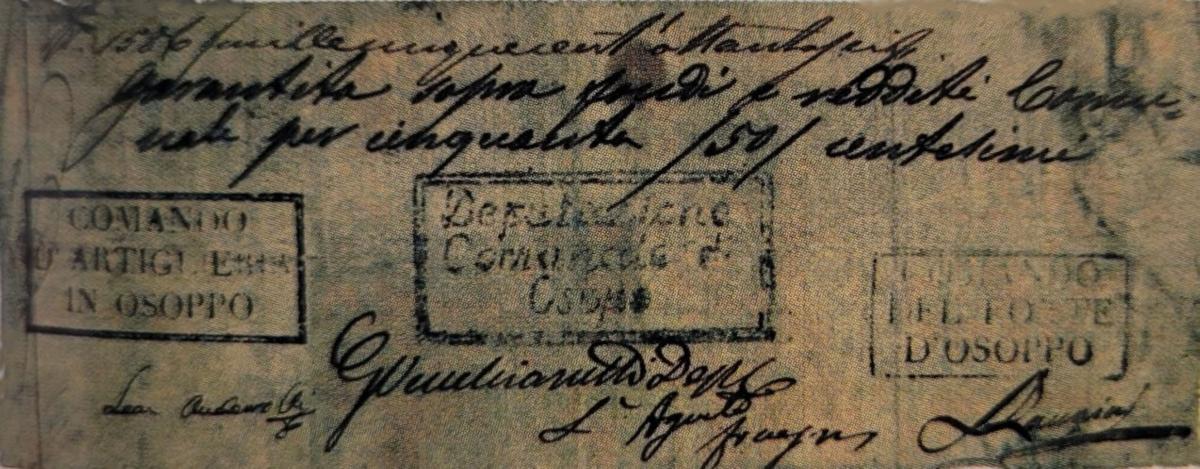 N. 1586 mille cinquecent'ottantasei
garantita sopra fondi e redditi Comu-
nali per cinquanta /50/ centesimi
COMANDO
D'ARTIGLIERIA
IN OSOPPO
Deputazione
Comunale d'
Osopo
COMANDO
DEL FORTE
D'OSOPPO
Dep